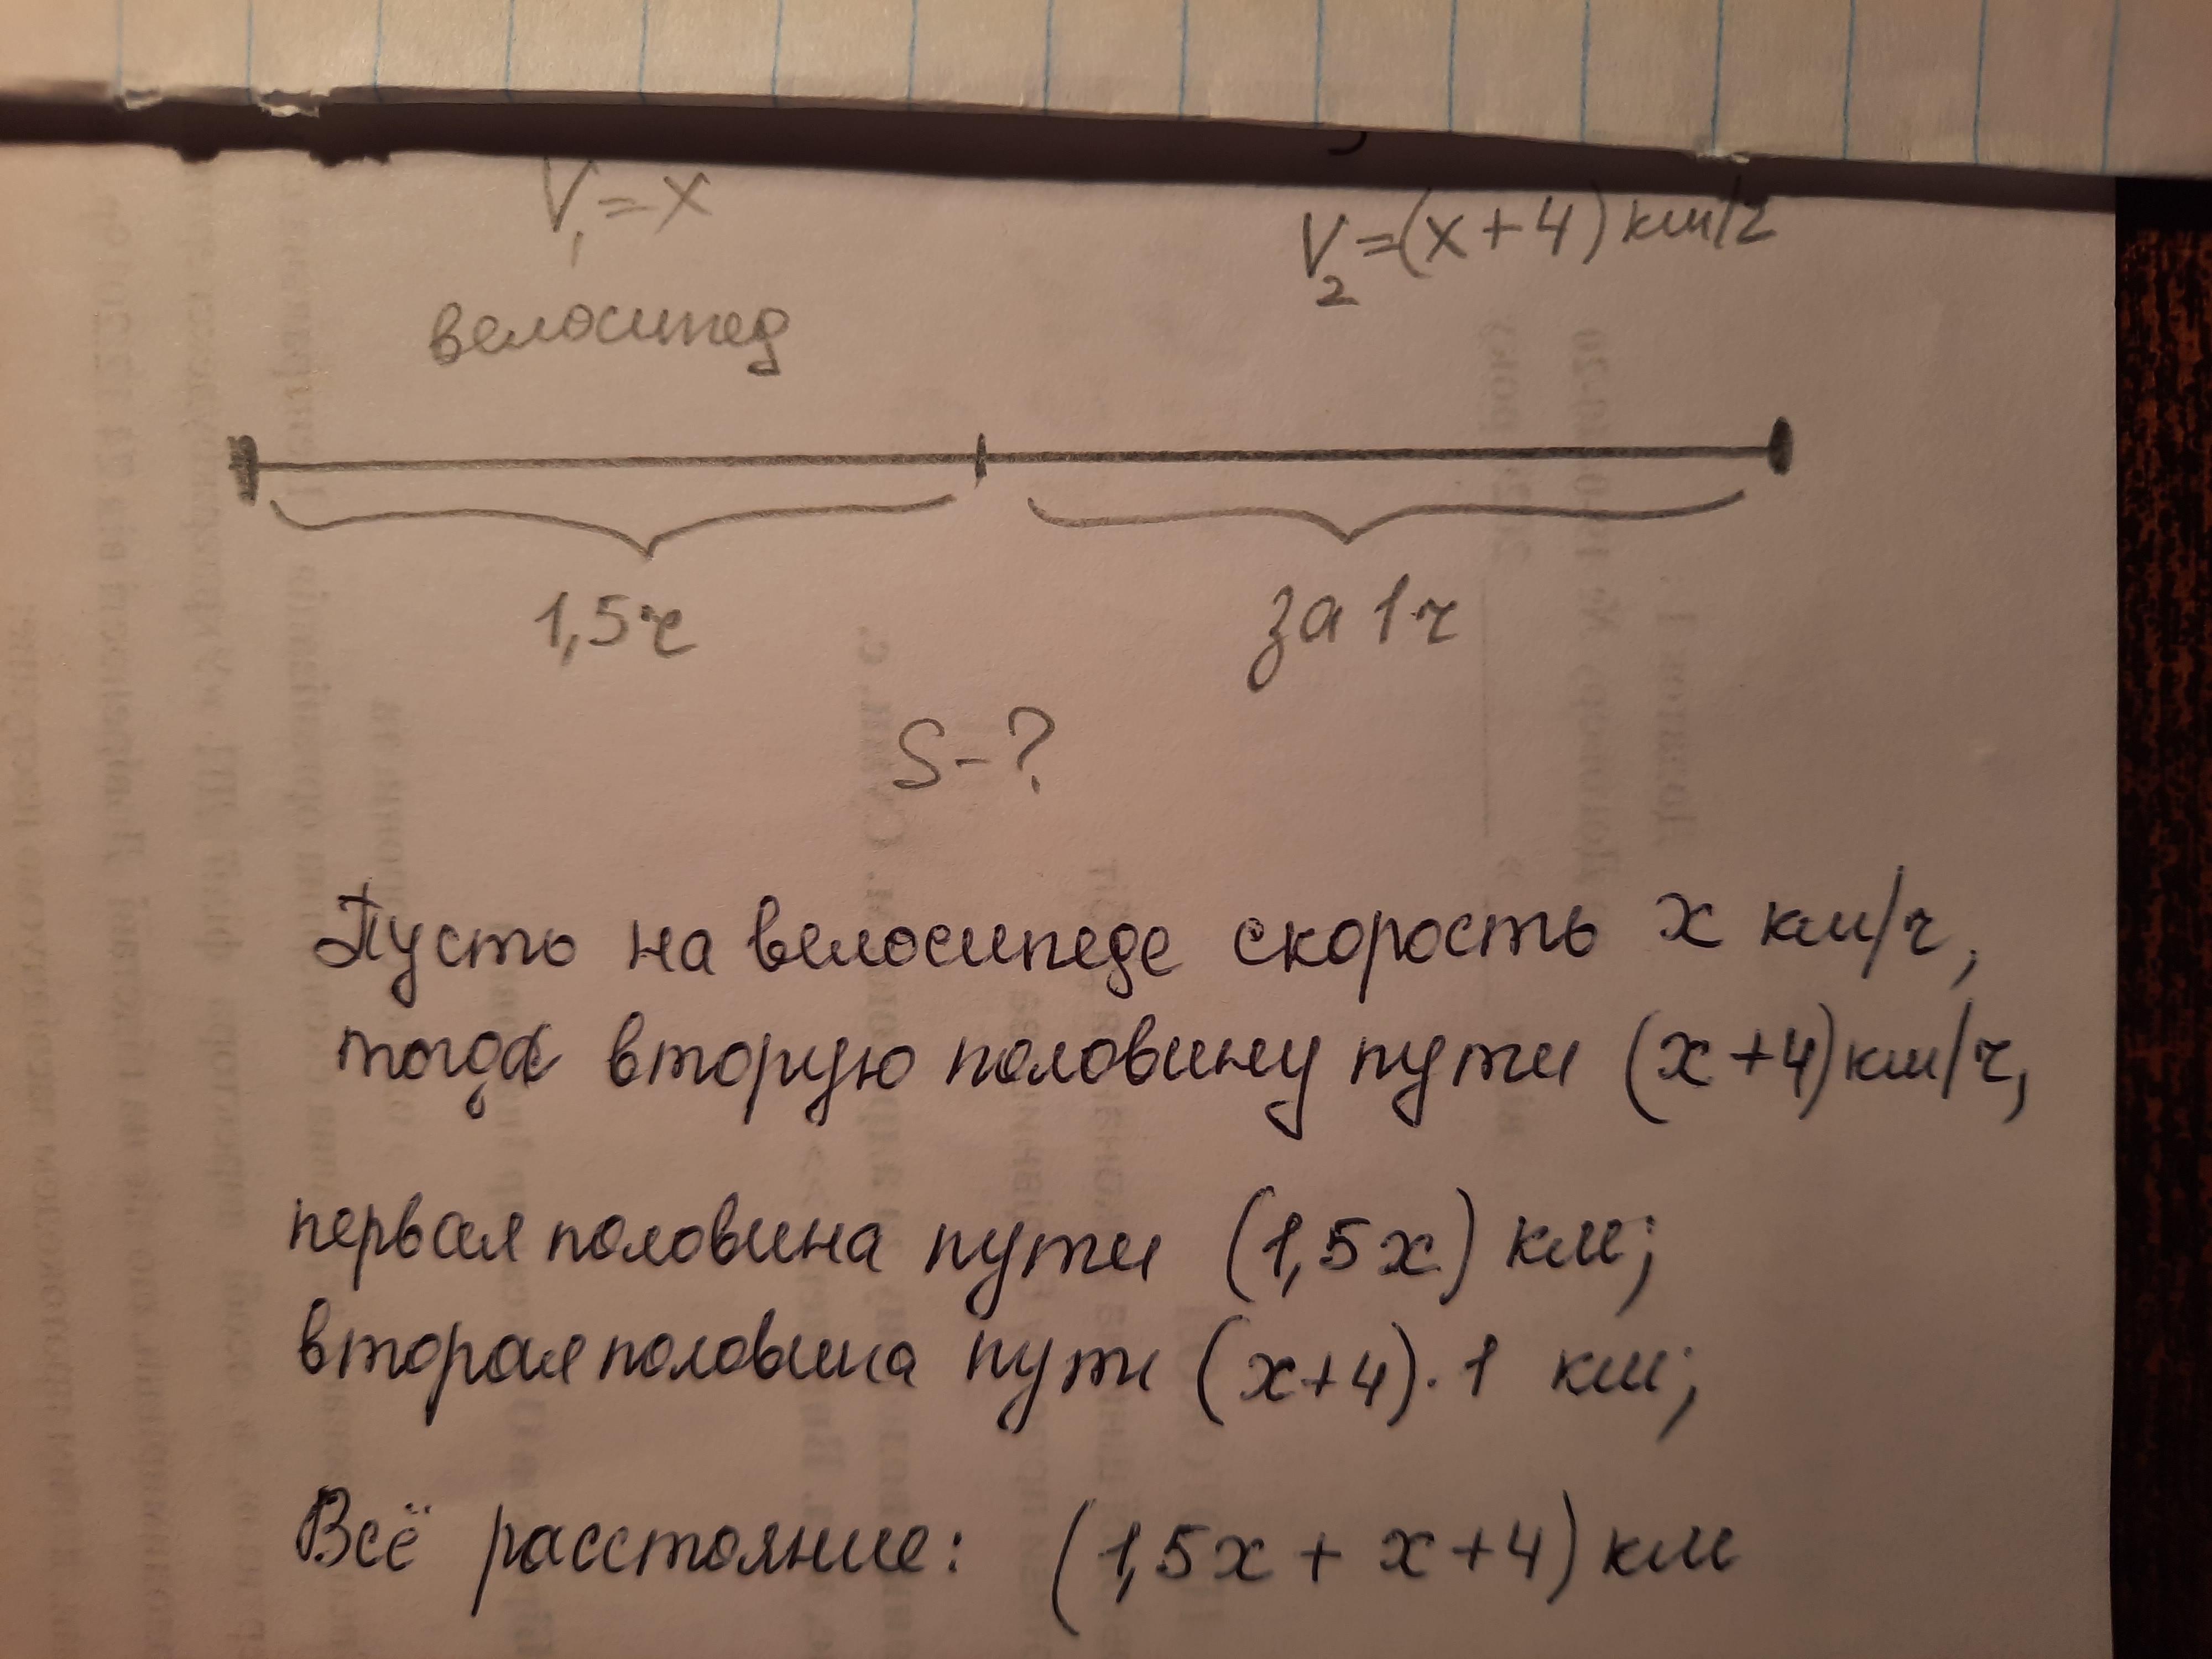 V₁=x
V₂=(x+4) км/ч
велосипед
1,5ч
за 1ч
S-?
Пусть на велосипеде скорость x км/ч,
тогда вторую половину пути (x+4)км/ч,
первая половина пути (1,5x) км;
вторая половина пути (x+4)·1 км;
Всё расстояние: (1,5x + x+4) км